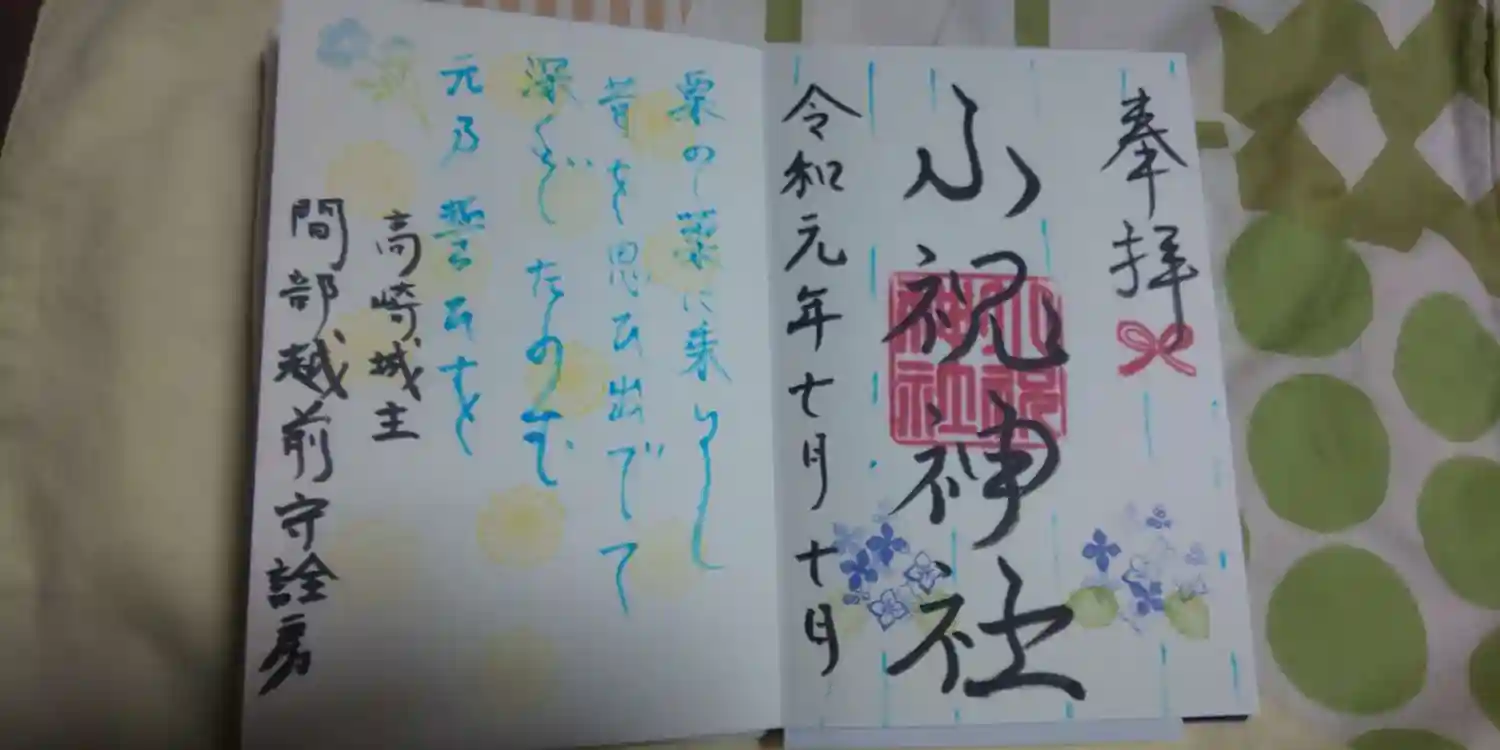 奉拝
小祝神社
小祝神社
令和元年七月十日
の に来りし
昔を思ひ出でて
深くぞたのむ
元乃誓ひを
高崎城主
間部越前守詮房